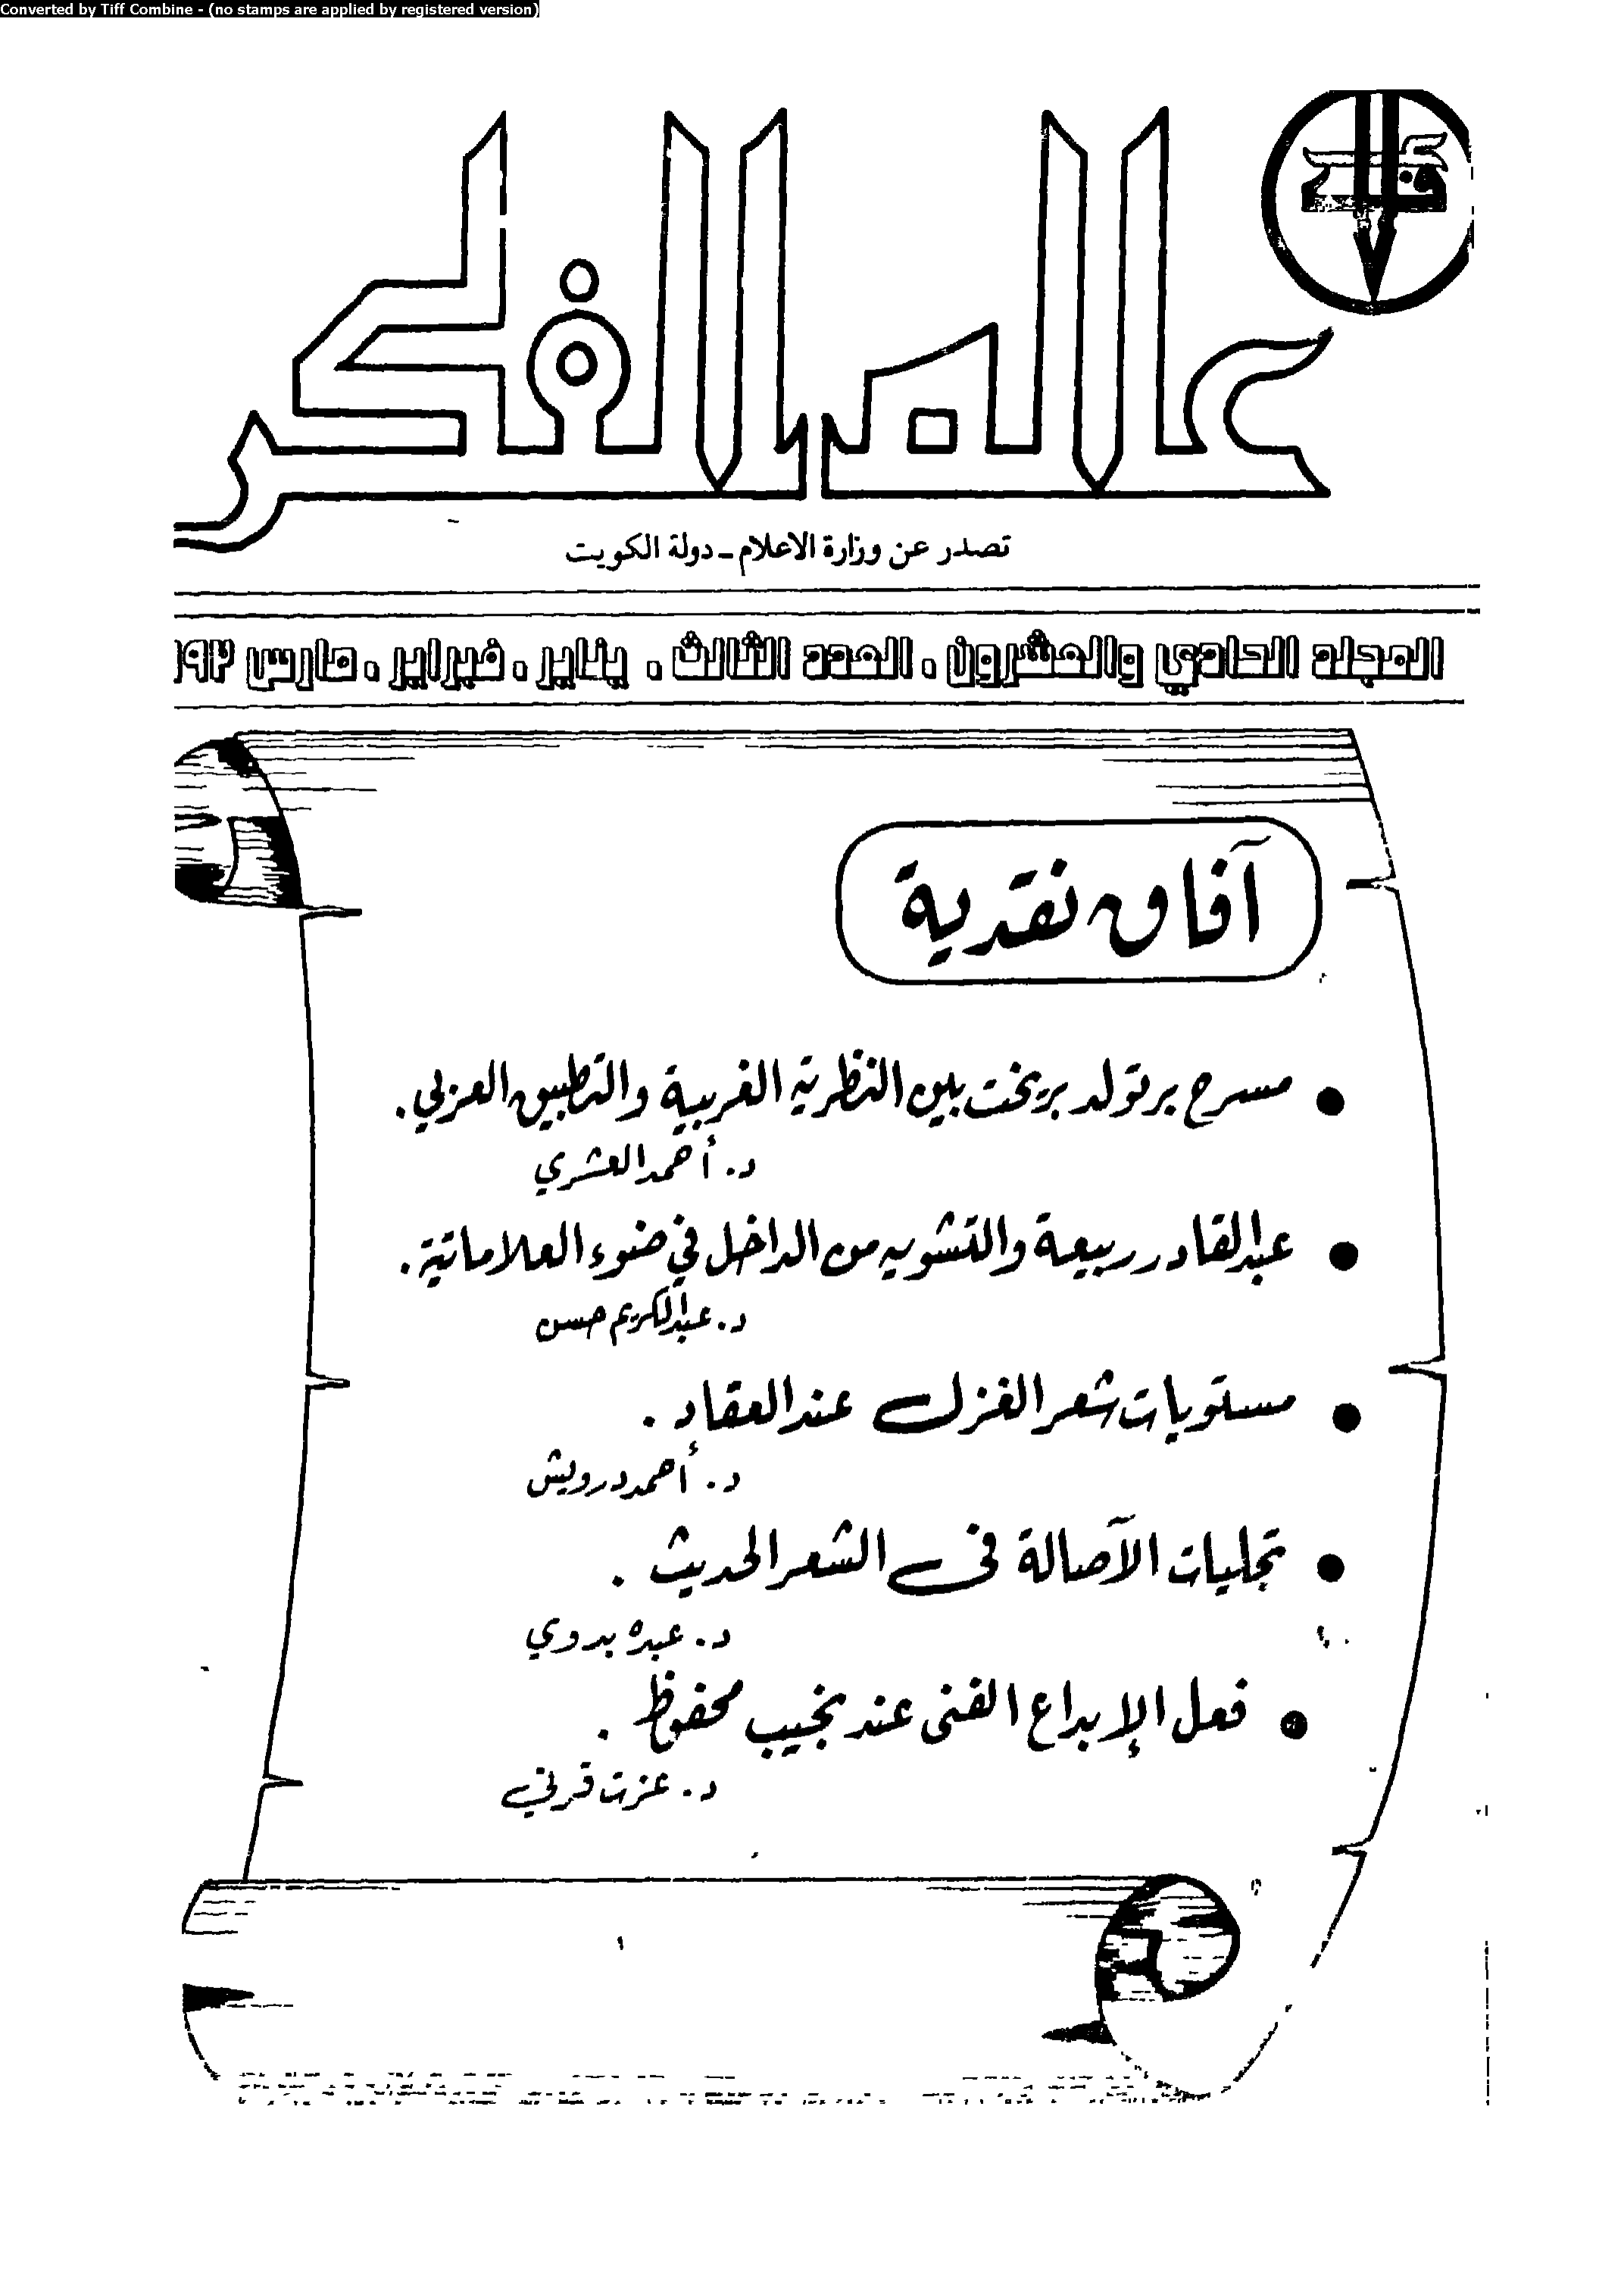 Converted by Tiff Combine - (no stamps are applied by registered version)
عالم الفكر
تصدر عن وزارة الاعلام - دولة الكويت
المجلد الحادي والعشرون . العدد الثالث . يناير . فبراير . مارس
آفاق نقدية
● مسرح برتولد بريخت بين النظرية الغربية والتطبيق العربي .
د . أحمد العشري
● عبدالقادر ربيعة والتشويه من الداخل في ضوء العلاماتية .
د . عبدالكريم حسن
● مستويات شعر الغزل عند العقاد .
د . أحمد درويش
● تجليات الآصالة فى الشعر الحديث .
د . عبده بدوي
● فعل الإبداع الفنى عند نجيب محفوظ .
د . عزت قرني